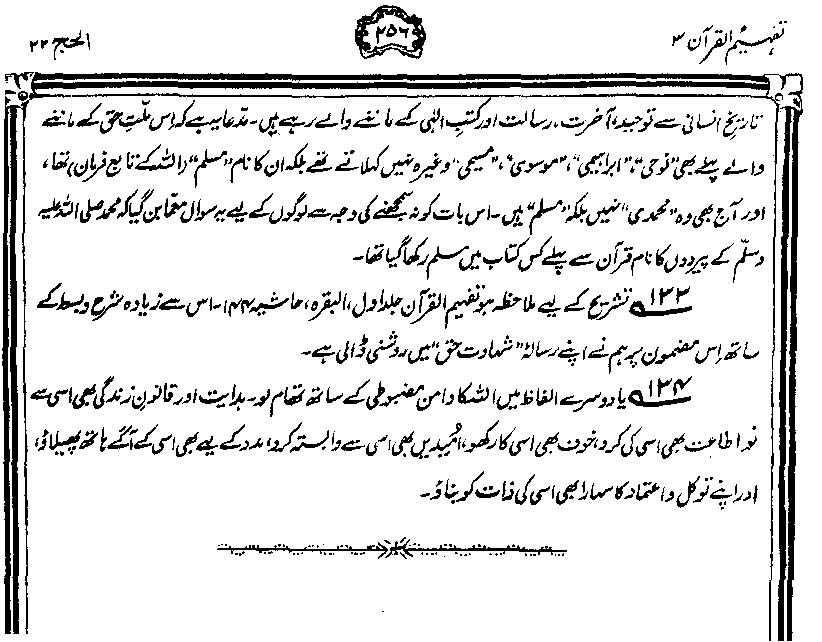 تفہیم القرآن ۳
۲۵۶
الحج ۲۲
تاریخِ انسانی سے توحید، آخرت، رسالت اور کتبِ الٰہی کے ماننے والے رہے ہیں۔ مدّعا یہ ہے کہ اِس ملّتِ حق کے ماننے
والے پہلے بھی ”نوحی“، ”ابراہیمی“، ”موسوی“، ”مسیحی“ وغیرہ نہیں کہلاتے تھے بلکہ ان کا نام ”مسلم“ (اللہ کے تابع فرمان) تھا،
اور آج بھی وہ ”محمدی“ نہیں بلکہ ”مسلم“ ہیں۔ اس بات کو نہ سمجھنے کی وجہ سے لوگوں کے لیے یہ سوال معمّا بن گیا کہ محمد صلی اللہ علیہ
وسلّم کے پیرووں کا نام قرآن سے پہلے کس کتاب میں مسلم رکھا گیا تھا۔
۱۳۳ تشریح کے لیے ملاحظہ ہو تفہیم القرآن جلد اول، البقرہ، حاشیہ ۱۴۴۔ اس سے زیادہ شرح وبسط کے
ساتھ اِس مضمون پر ہم نے اپنے رسالۂ ”شہادت حق“ میں روشنی ڈالی ہے۔
۱۳۴ یا دوسرے الفاظ میں اللہ کا دامن مضبوطی کے ساتھ تھام لو۔ ہدایت اور قانونِ زندگی بھی اسی سے
لو، اطاعت بھی اسی کی کرو، خوف بھی اسی کا رکھو، اُمیدیں بھی اسی سے وابستہ کرو، مدد کے لیے بھی اسی کے آگے ہاتھ پھیلاؤ،
اور اپنے توکل و اعتماد کا سہارا بھی اسی کی ذات کو بناؤ۔